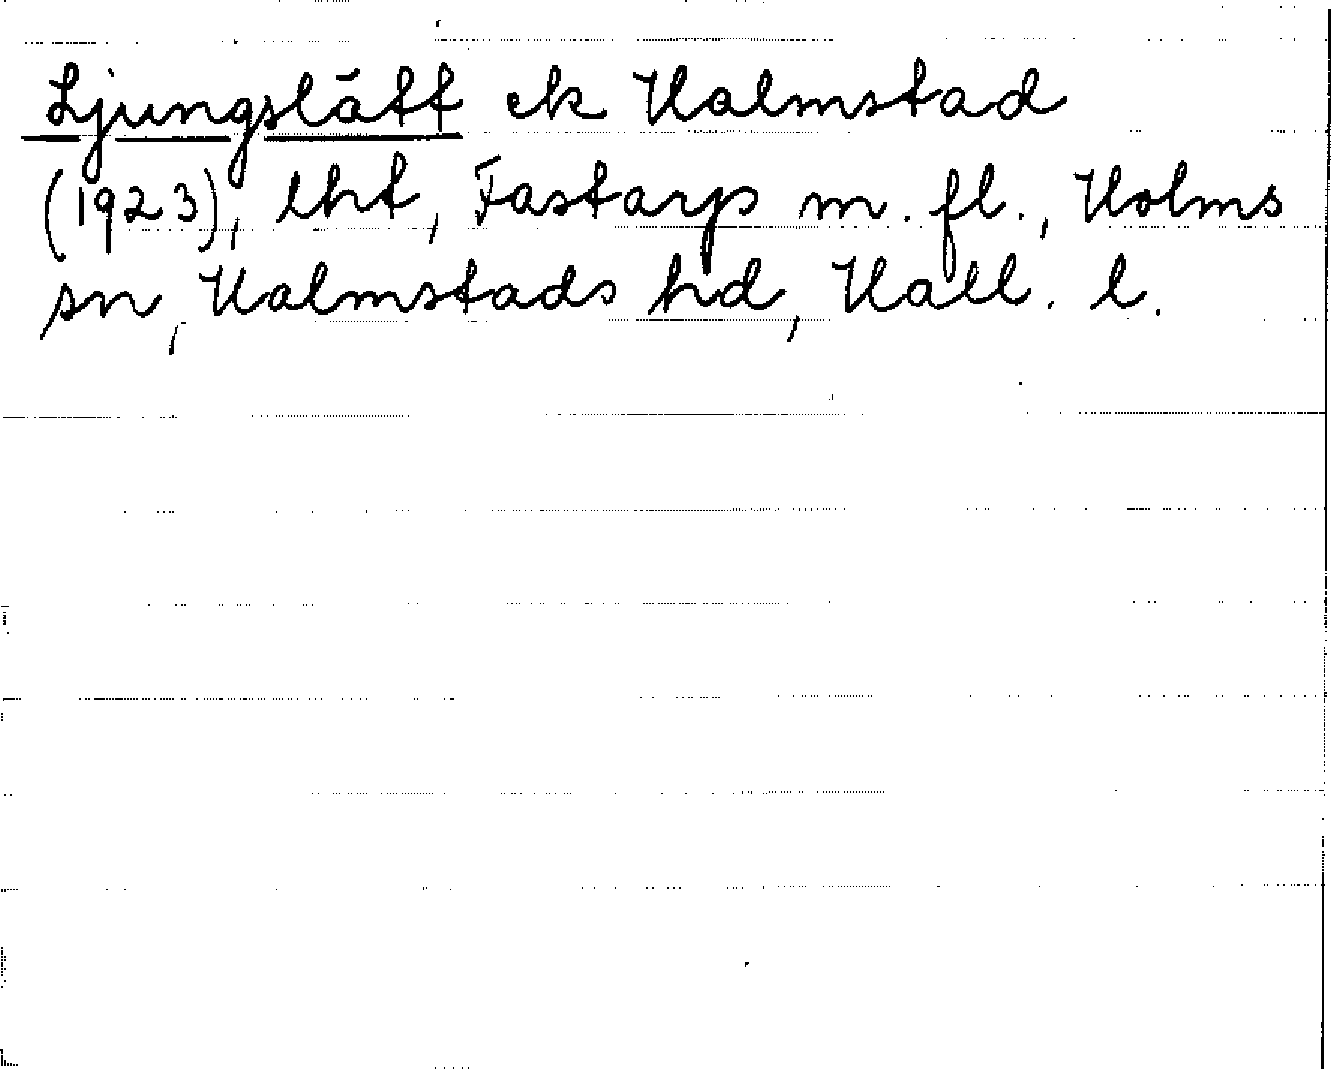 Ljungslätt ek Halmstad
(1923), lht, Fastarp m. fl., Holms
sn, Halmstads hd, Hall. l.